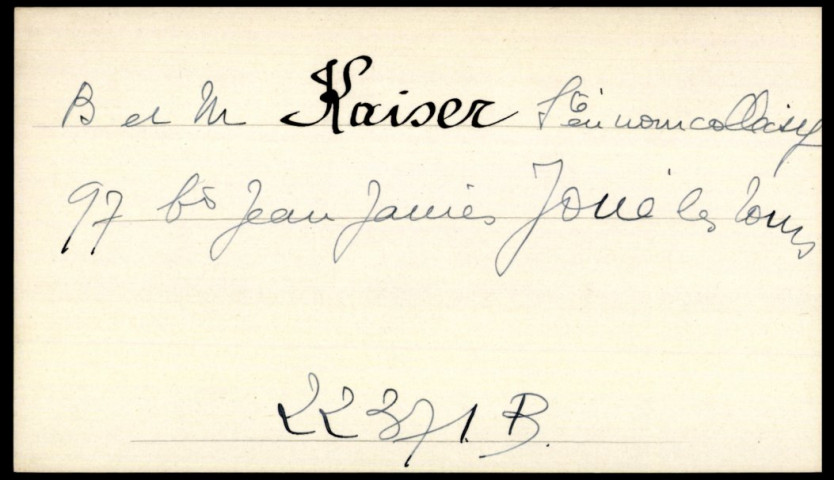 B et M Kaiser Sté en nom collectif
97 bd Jean Jaurès Joué les Tours
22371 B.